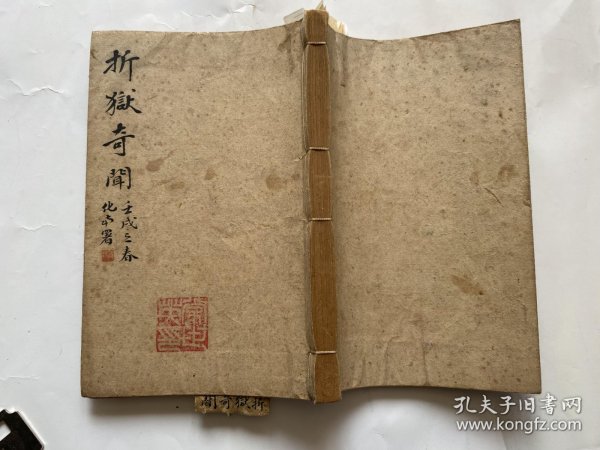 折獄奇聞
壬戌之春
化南署
折獄奇聞
孔夫子旧书网
www.kongfz.com